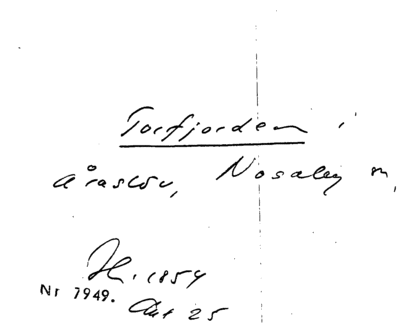 Torfjorden i
Åraslöv, Nosaby m,
H. 1854
Nr 7949. Akt 25